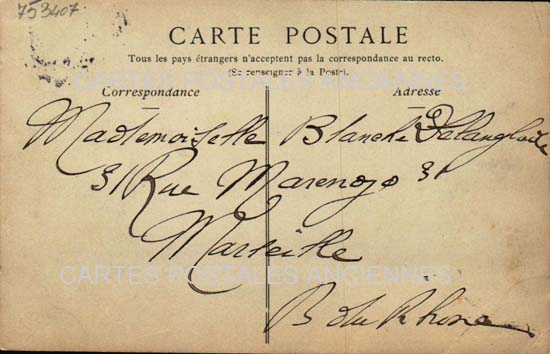 753407
CARTE POSTALE
Tous les pays étrangers n'acceptent pas la correspondance au recto.
(Se renseigner à la Poste).
CARTES POSTALES ANCIENNES
Correspondance Adresse
Mademoiselle Blanche
31 Rue Marengo 31
Marseille
CARTES POSTALES ANCIENNES
B du Rhone